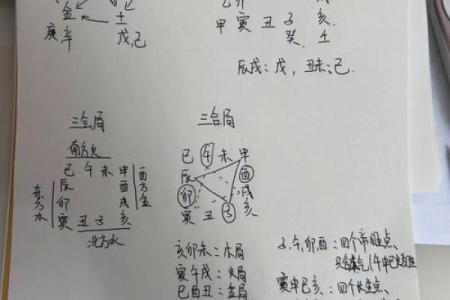 金 土
庚辛 戊,己
甲寅 丑 子 亥
癸 壬
辰戌:戊,丑未:己.
三会局 三合局
南方火
巳 午 未 申
辰 酉
卯 戌
寅 丑 子 亥
北方水
西方金
巳 午 未 申
辰 酉
卯 戌
寅 丑 子 亥
亥卯未:木局
寅午戌:火局
巳酉丑:金局
子,午,卯酉:四个帝旺点,
寅申巳亥:四个长生点,